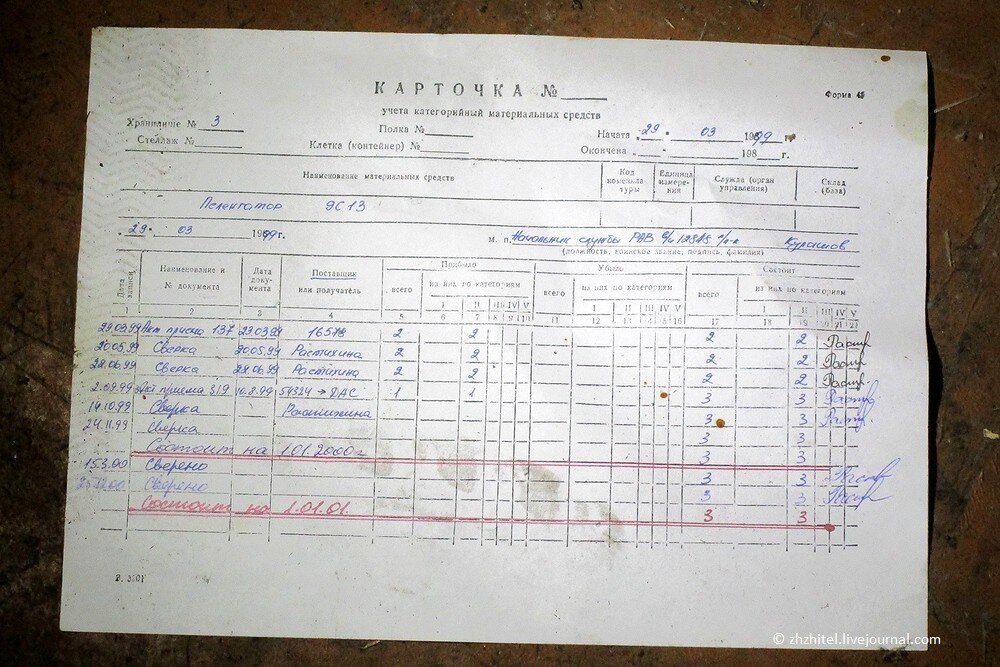 КАРТОЧКА №
Форма 45
учета категорийный материальных средств
Хранилище № 3
Полка №
Начата 29. 03 1999 г.
Стеллаж №
Клетка (контейнер) №
Окончена 198 г.
Наименование материальных средств
Код номенклатуры
Единица измерения
Служба (орган управления)
Склад (база)
Пеленгатор 9С13
29. 03 1999г.
м. п. Начальник службы РАВ в/ч п/п-к
(должность, воинское звание, подпись, фамилия)
Дата записи
Наименование и № документа
Дата документа
Поставщик или получатель
Прибыло
Убыло
Состоит
всего из них по категориям всего из них по категориям всего из них по категориям
I II III IV V I II III IV V I II III IV V
1 2 3 4 5 6 7 8 9 10 11 12 13 14 15 16 17 18 19 20 21 22
29.03.99 Акт приема 137 29.03.99 2 2 2 2
20.05.99 Сверка 20.05.99 Растихина 2 2 2 2
28.06.99 Сверка 28.06.99 Растихина 2 2 2 2
2.09.99 Акт приема 319 54324 → 1 1 3 3
14.10.99 Сверка Растихина 3 3
24.11.99 Сверка 3 3
Состоит на 1.01.2000г 3 3
15.3.00 Сверено 3 3
Сверено 3 3
Состоит на 1.01.01. 3 3
© zhzhitel.livejournal.com